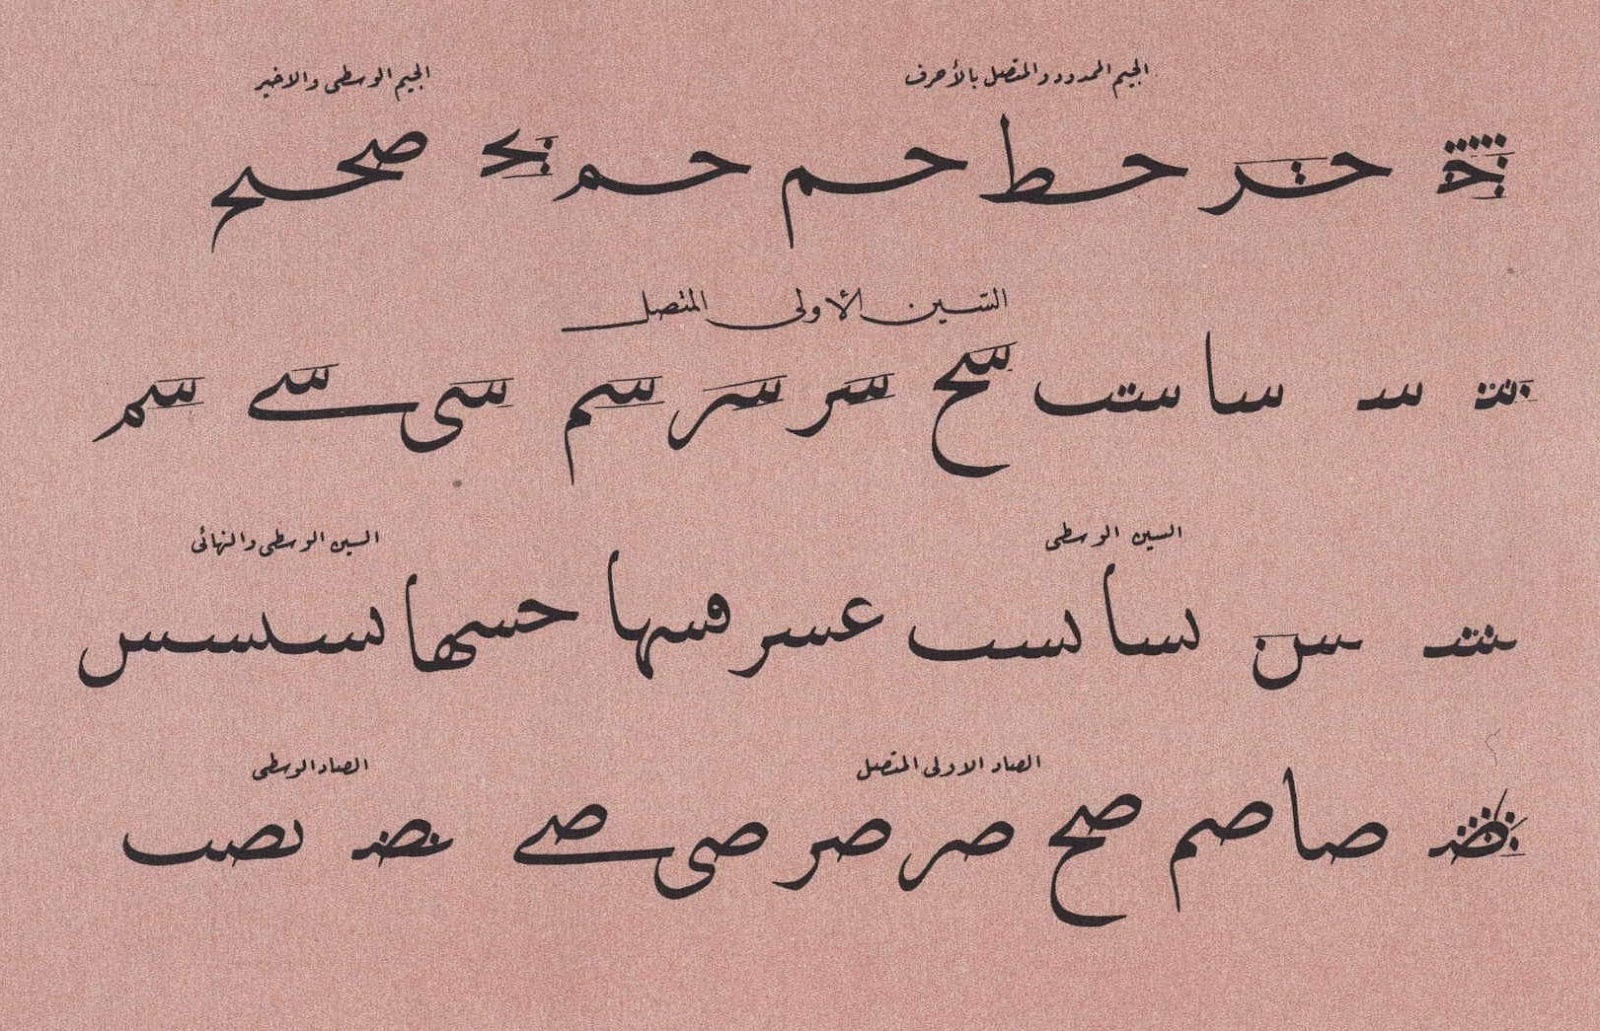 الجيم الممدود والمتصل بالأحرف الجيم الوسطى والاخير
حر حط حم حم صححح
السّين الأولى المتصل
سـ سا ست سح سر سر سم سى سے سم
السين الوسطى السين الوسطى والنهائى
ـسـ ـس ىسا ىست عسر فسها حسها ىسسس
الصاد الاولى المتصل الصاد الوسطى
صا صم صح صر صر صى صے ـصـ ىصت